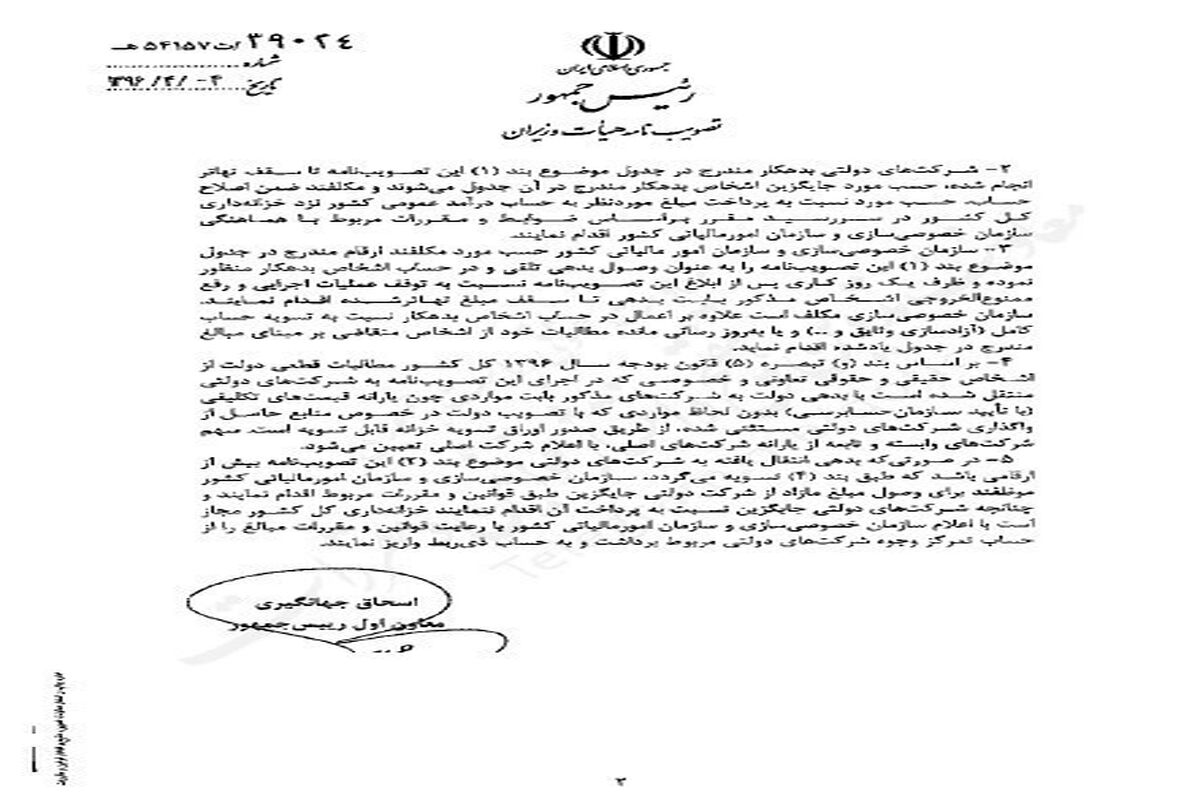 ۳۹۰۲۴/ت۵۴۱۵۷هـ
شماره
۱۳۹۶/۴/۰۴
تاریخ
جمهوری اسلامی ایران
رئیس جمهور
تصویب نامه هیأت وزیران
۲- شرکت‌های دولتی بدهکار مندرج در جدول موضوع بند (۱) این تصویب‌نامه تا سقف تهاتر
انجام شده، حسب مورد جایگزین اشخاص بدهکار مندرج در آن جدول می‌شوند و مکلفند ضمن اصلاح
حساب، حسب مورد نسبت به پرداخت مبلغ موردنظر به حساب درآمد عمومی کشور نزد خزانه‌داری
کل کشور در سررسید مقرر براساس ضوابط و مقررات مربوط با هماهنگی
سازمان خصوصی‌سازی و سازمان امورمالیاتی کشور اقدام نمایند.
۳- سازمان خصوصی‌سازی و سازمان امور مالیاتی کشور حسب مورد مکلفند ارقام مندرج در جدول
موضوع بند (۱) این تصویب‌نامه را به عنوان وصول بدهی تلقی و در حساب اشخاص بدهکار منظور
نموده و ظرف یک روز کاری پس از ابلاغ این تصویب‌نامه نسبت به توقف عملیات اجرایی و رفع
ممنوع‌الخروجی اشخاص مذکور بابت بدهی تا سقف مبلغ تهاترشده اقدام نمایند.
سازمان خصوصی‌سازی مکلف است علاوه بر اعمال در حساب اشخاص بدهکار نسبت به تسویه حساب
کامل (آزادسازی وثایق و ...) و یا به‌روز رسانی مانده مطالبات خود از اشخاص متقاضی بر مبنای مبالغ
مندرج در جدول یادشده اقدام نماید.
۴- بر اساس بند (و) تبصره (۵) قانون بودجه سال ۱۳۹۶ کل کشور مطالبات قطعی دولت از
اشخاص حقیقی و حقوقی تعاونی و خصوصی که در اجرای این تصویب‌نامه به شرکت‌های دولتی
منتقل شده است با بدهی دولت به شرکت‌های مذکور بابت مواردی چون یارانه قیمت‌های تکلیفی
(با تأیید سازمان حسابرسی) بدون لحاظ مواردی که با تصویب دولت در خصوص منابع حاصل از
واگذاری شرکت‌های دولتی مستثنی شده، از طریق صدور اوراق تسویه خزانه قابل تسویه است. سهم
شرکت‌های وابسته و تابعه از یارانه شرکت‌های اصلی، با اعلام شرکت اصلی تعیین می‌شود.
۵- در صورتی‌که بدهی انتقال یافته به شرکت‌های دولتی موضوع بند (۲) این تصویب‌نامه بیش از
ارقامی باشد که طبق بند (۴) تسویه می‌گردد، سازمان خصوصی‌سازی و سازمان امورمالیاتی کشور
موظفند برای وصول مبلغ مازاد از شرکت دولتی جایگزین طبق قوانین و مقررات مربوط اقدام نمایند و
چنانچه شرکت‌های دولتی جایگزین نسبت به پرداخت آن اقدام ننمایند خزانه‌داری کل کشور مجاز
است با اعلام سازمان خصوصی‌سازی و سازمان امورمالیاتی کشور با رعایت قوانین و مقررات مبالغ را از
حساب تمرکز وجوه شرکت‌های دولتی مربوط برداشت و به حساب ذی‌ربط واریز نمایند.
اسحاق جهانگیری
معاون اول رییس‌جمهور
۲